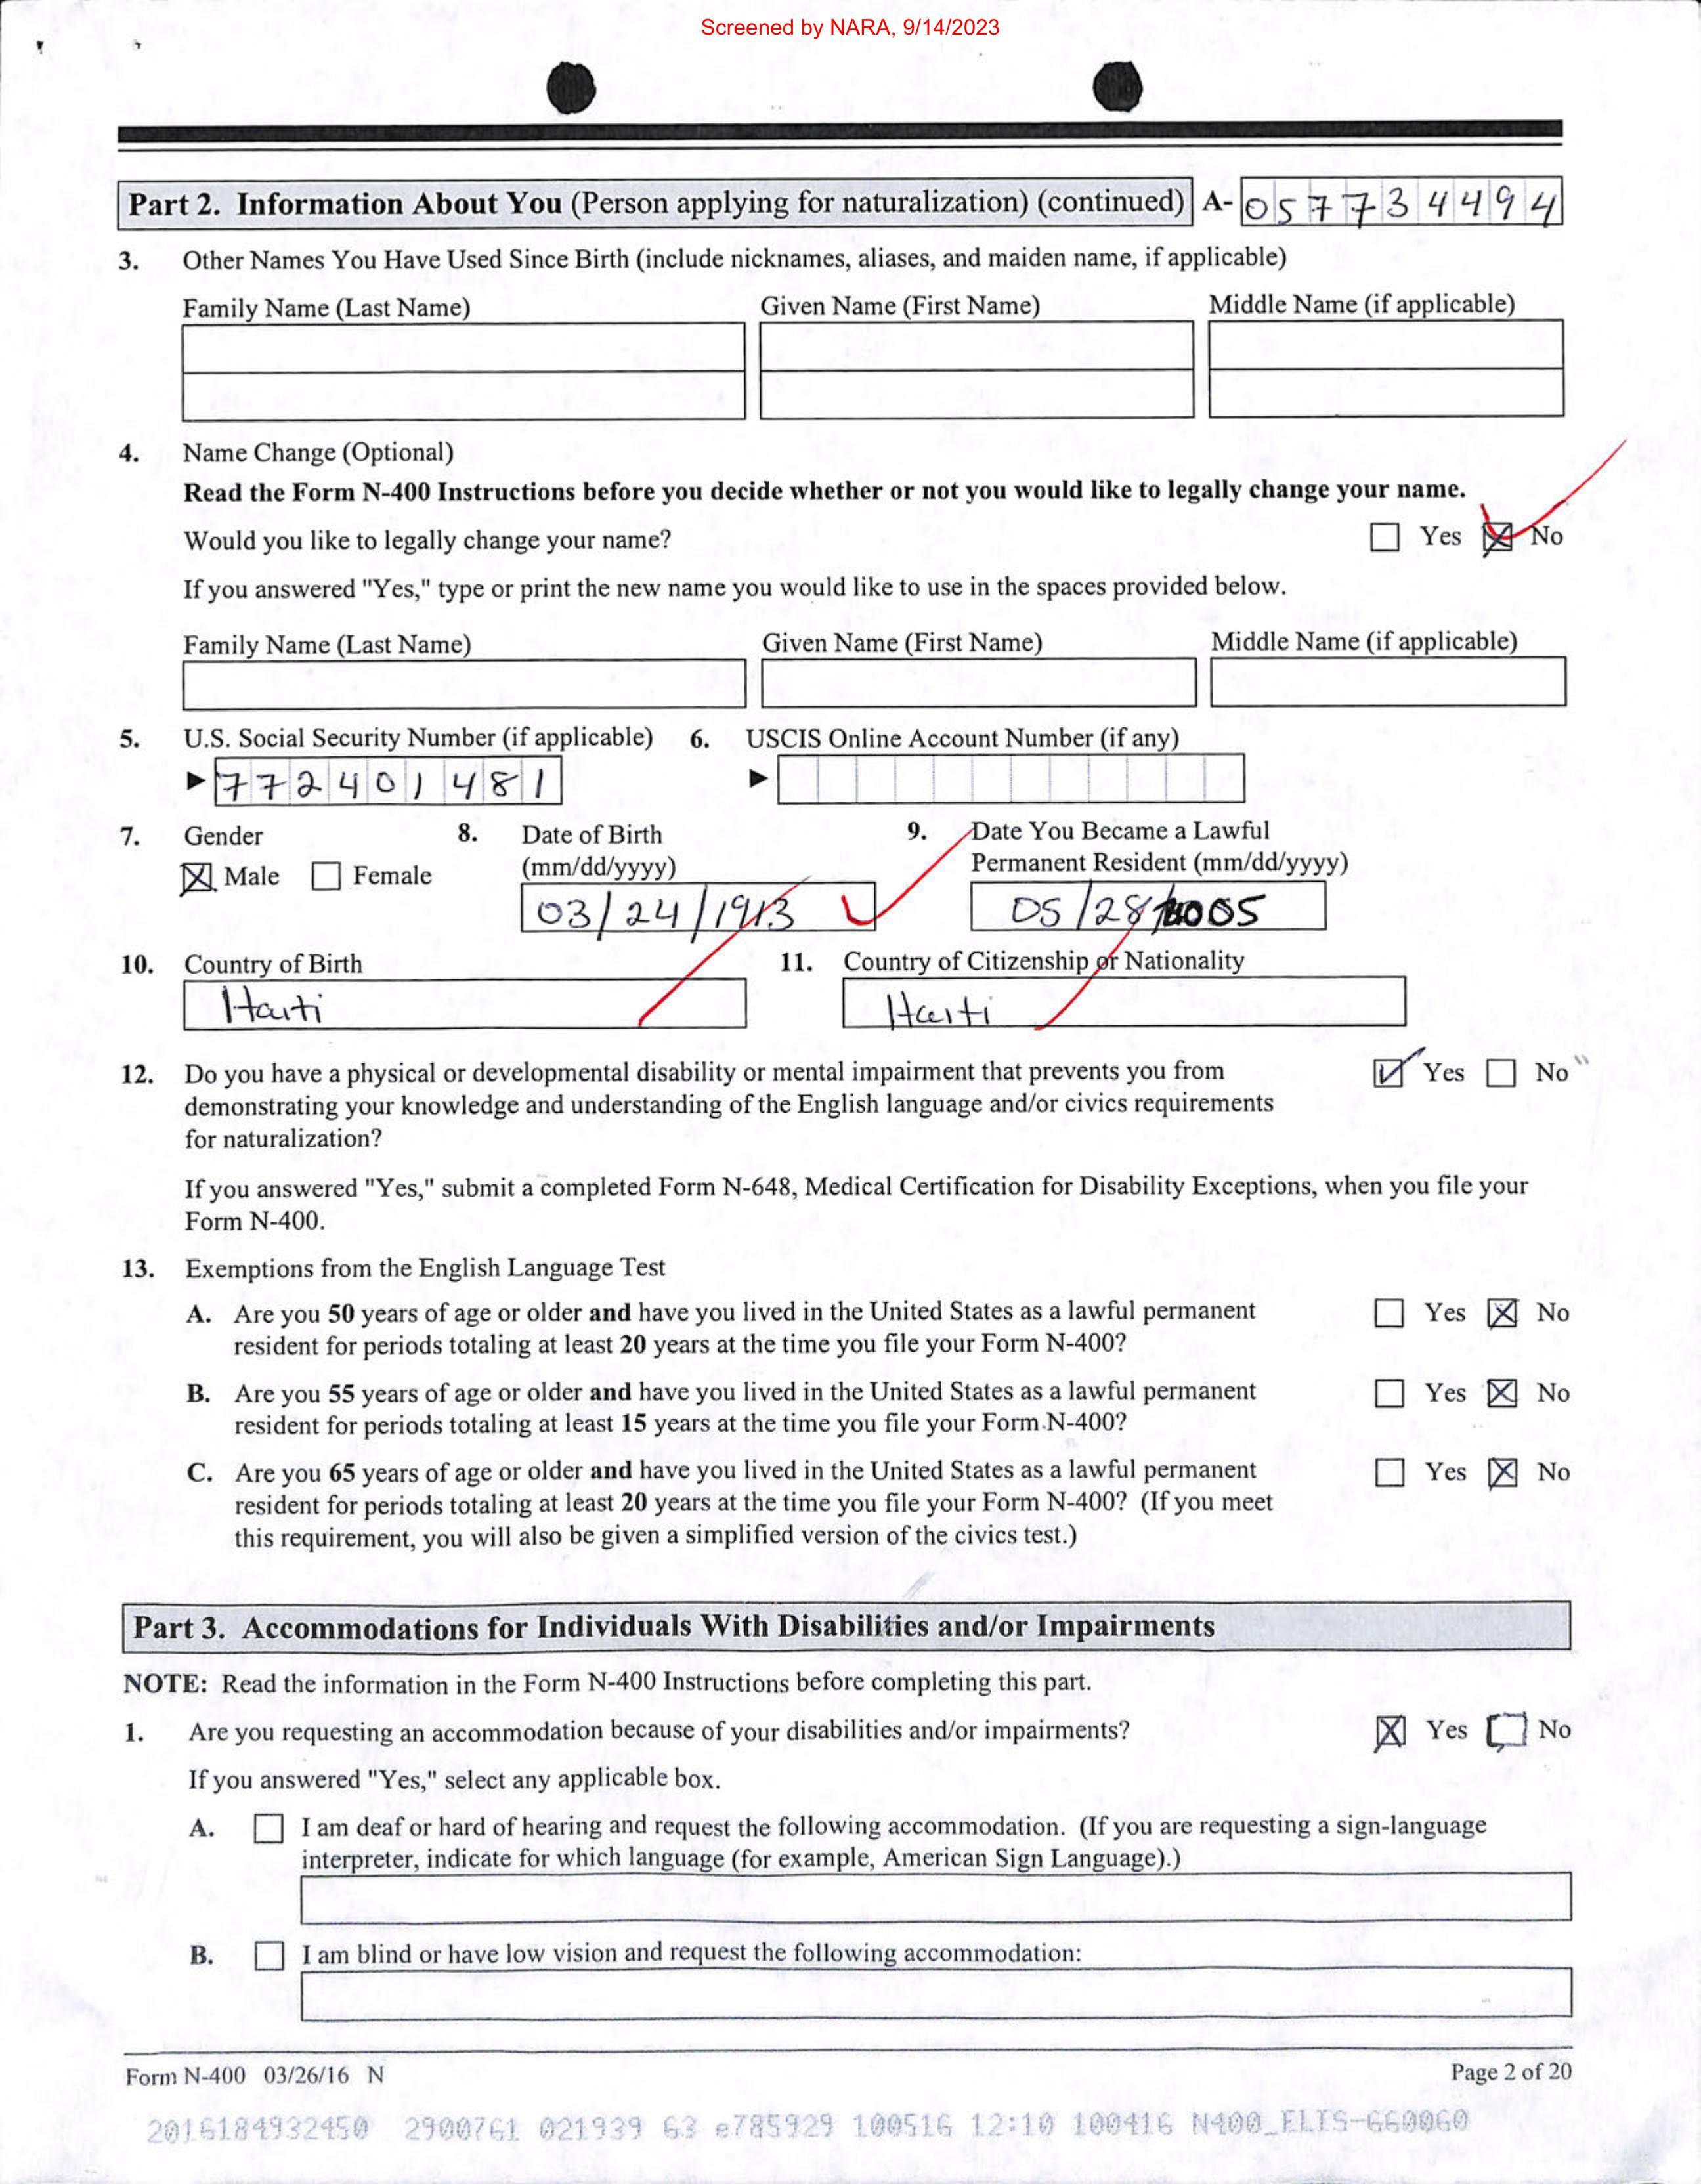 Screened by NARA, 9/14/2023
Part 2. Information About You (Person applying for naturalization) (continued) A- 057734494
3. Other Names You Have Used Since Birth (include nicknames, aliases, and maiden name, if applicable)
Family Name (Last Name) Given Name (First Name) Middle Name (if applicable)
4. Name Change (Optional)
Read the Form N-400 Instructions before you decide whether or not you would like to legally change your name.
Would you like to legally change your name? Yes No
If you answered "Yes," type or print the new name you would like to use in the spaces provided below.
Family Name (Last Name) Given Name (First Name) Middle Name (if applicable)
5. U.S. Social Security Number (if applicable) 6. USCIS Online Account Number (if any)
772401481
7. Gender 8. Date of Birth 9. Date You Became a Lawful
Male Female (mm/dd/yyyy) Permanent Resident (mm/dd/yyyy)
03/24/1913 05/28/2005
10. Country of Birth 11. Country of Citizenship or Nationality
Haiti Haiti
12. Do you have a physical or developmental disability or mental impairment that prevents you from Yes No
demonstrating your knowledge and understanding of the English language and/or civics requirements
for naturalization?
If you answered "Yes," submit a completed Form N-648, Medical Certification for Disability Exceptions, when you file your
Form N-400.
13. Exemptions from the English Language Test
A. Are you 50 years of age or older and have you lived in the United States as a lawful permanent Yes No
resident for periods totaling at least 20 years at the time you file your Form N-400?
B. Are you 55 years of age or older and have you lived in the United States as a lawful permanent Yes No
resident for periods totaling at least 15 years at the time you file your Form N-400?
C. Are you 65 years of age or older and have you lived in the United States as a lawful permanent Yes No
resident for periods totaling at least 20 years at the time you file your Form N-400? (If you meet
this requirement, you will also be given a simplified version of the civics test.)
Part 3. Accommodations for Individuals With Disabilities and/or Impairments
NOTE: Read the information in the Form N-400 Instructions before completing this part.
1. Are you requesting an accommodation because of your disabilities and/or impairments? Yes No
If you answered "Yes," select any applicable box.
A. I am deaf or hard of hearing and request the following accommodation. (If you are requesting a sign-language
interpreter, indicate for which language (for example, American Sign Language).)
B. I am blind or have low vision and request the following accommodation:
Form N-400 03/26/16 N Page 2 of 20
2016184932450 2900761 021939 63 e785929 100516 12:10 100416 N400_ELIS-660060